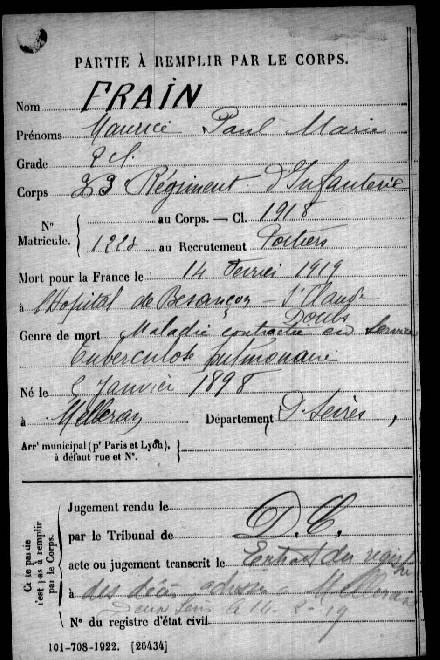 PARTIE À REMPLIR PAR LE CORPS.
Nom FRAIN
Prénoms Maurice Paul Marie
Grade 2 Cl.
Corps 33 Régiment d'Infanterie
N° Matricule. au Corps. — Cl. 1918
1228 au Recrutement Poitiers
Mort pour la France le 14 Février 1919
à l'Hopital de Besançon - St Claude
Doubs
Genre de mort Maladie contractée en service
Tuberculose pulmonaire
Né le 5 Janvier 1898
à Melleran Département D. Sèvres,
Arr' municipal (pr Paris et Lyon),
à défaut rue et N°.
Ce te partie
n'est pas à remplir
par le Corps.
Jugement rendu le
par le Tribunal de D.C.
acte ou jugement transcrit le Extrait du registre
à des décès adressé Melleran
Deux Sèvres le 14-2-19
N° du registre d'état civil
101-708-1922. [26434]